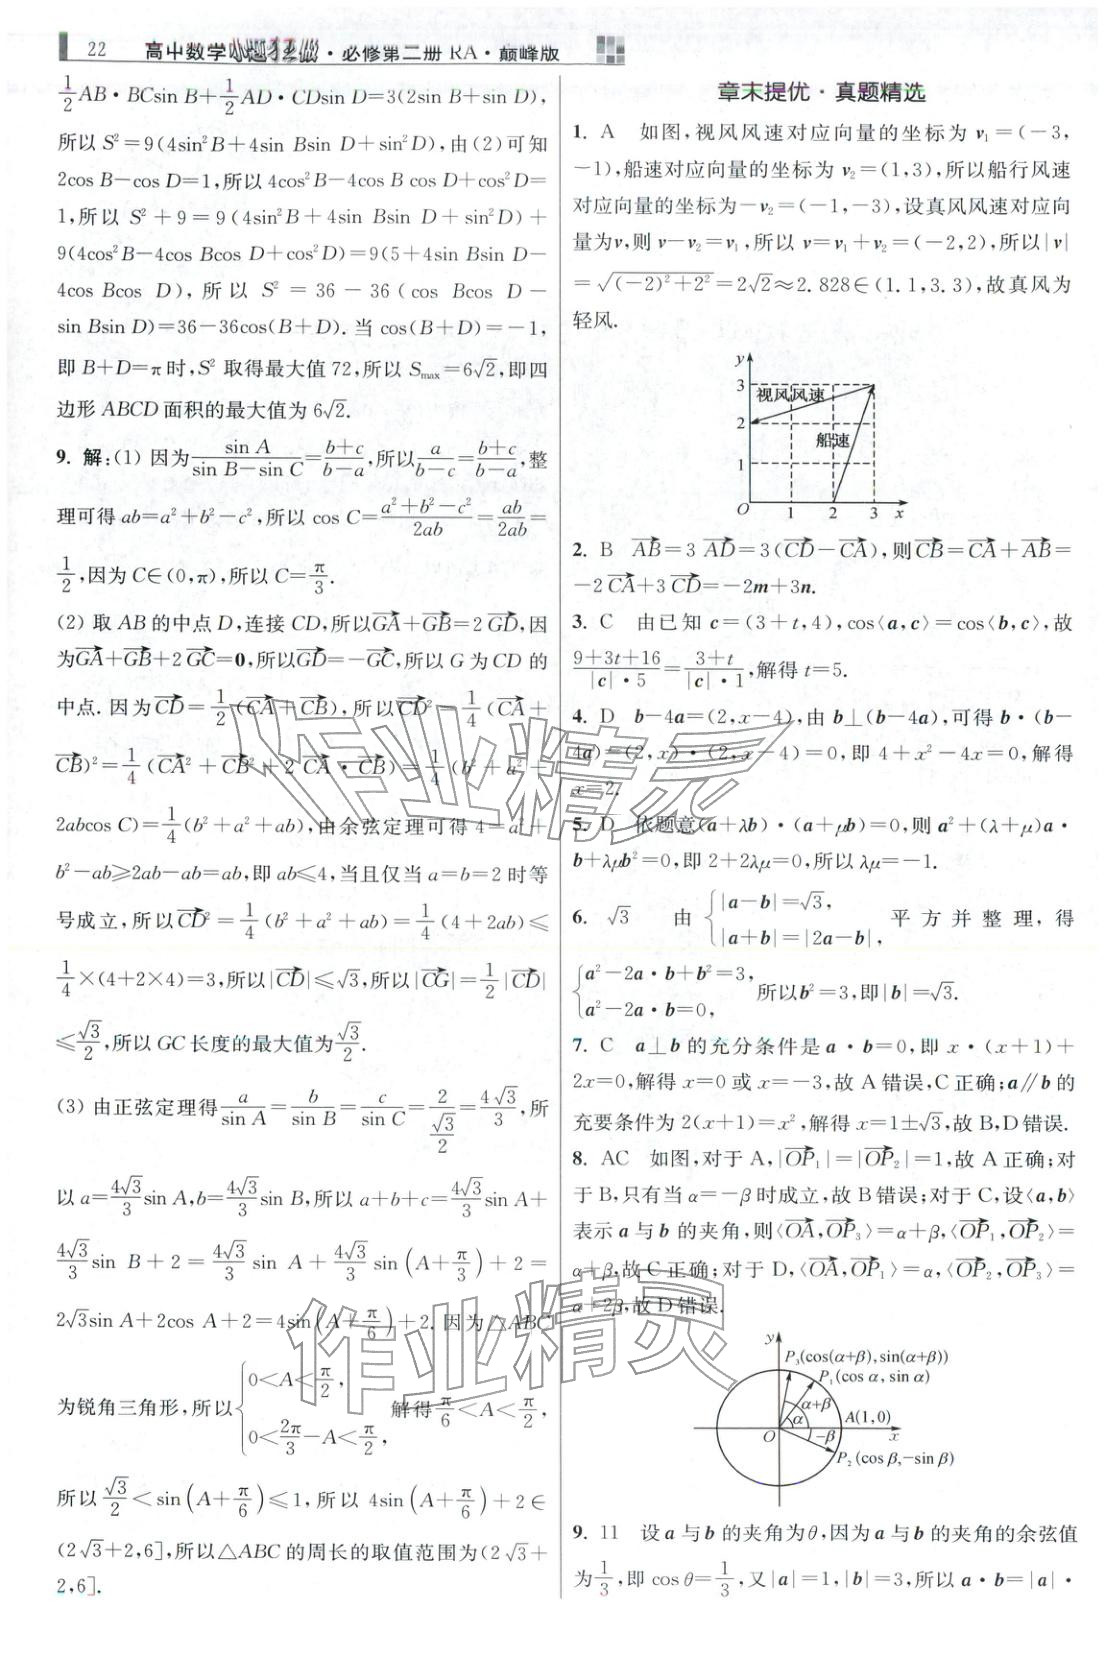 22 高中数学小题狂做·必修第二册 RA·巅峰版
$\frac{1}{2}$AB·BCsin B+$\frac{1}{2}$AD·CDsin D=3(2sin B+sin D),
所以 S²=9(4sin²B+4sin Bsin D+sin²D),由(2)可知
2cos B−cos D=1,所以 4cos²B−4cos B cos D+cos²D=
1,所以 S²+9=9(4sin²B+4sin Bsin D+sin²D)+
9(4cos²B−4cos Bcos D+cos²D)=9(5+4sin Bsin D−
4cos Bcos D),所以 S²=36−36(cos Bcos D−
sin Bsin D)=36−36cos(B+D).当 cos(B+D)=−1,
即 B+D=π时,S² 取得最大值 72,所以 $S_{max}$=6√2,即四
边形 ABCD 面积的最大值为 6√2.
9. 解:(1) 因为$\frac{\sin A}{\sin B-\sin C}=\frac{b+c}{b-a}$,所以$\frac{a}{b-c}=\frac{b+c}{b-a}$,整
理可得 ab=a²+b²−c²,所以 cos C=$\frac{a^2+b^2-c^2}{2ab}=\frac{ab}{2ab}$=
$\frac{1}{2}$,因为 C∈(0,π),所以 C=$\frac{π}{3}$.
(2) 取 AB 的中点 D,连接 CD,所以$\overrightarrow{GA}+\overrightarrow{GB}=2\overrightarrow{GD}$,因
为$\overrightarrow{GA}+\overrightarrow{GB}+2\overrightarrow{GC}$=0,所以$\overrightarrow{GD}=-\overrightarrow{GC}$,所以 G 为 CD 的
中点.因为$\overrightarrow{CD}=\frac{1}{2}(\overrightarrow{CA}+\overrightarrow{CB})$,所以$\overrightarrow{CD}^2=\frac{1}{4}(\overrightarrow{CA}+$
$\overrightarrow{CB})^2=\frac{1}{4}(\overrightarrow{CA}^2+\overrightarrow{CB}^2+2\overrightarrow{CA}·\overrightarrow{CB})=\frac{1}{4}(b^2+a^2+$
2abcos C)=$\frac{1}{4}$(b²+a²+ab),由余弦定理可得 4=a²+
b²−ab≥2ab−ab=ab,即 ab≤4,当且仅当 a=b=2 时等
号成立,所以$\overrightarrow{CD}^2=\frac{1}{4}(b^2+a^2+ab)=\frac{1}{4}(4+2ab)$≤
$\frac{1}{4}$×(4+2×4)=3,所以|$\overrightarrow{CD}$|≤√3,所以|$\overrightarrow{CG}$|=$\frac{1}{2}$|$\overrightarrow{CD}$|
≤$\frac{\sqrt{3}}{2}$,所以 GC 长度的最大值为$\frac{\sqrt{3}}{2}$.
(3) 由正弦定理得$\frac{a}{\sin A}=\frac{b}{\sin B}=\frac{c}{\sin C}=\frac{2}{\frac{\sqrt{3}}{2}}=\frac{4\sqrt{3}}{3}$,所
以 a=$\frac{4\sqrt{3}}{3}$sin A,b=$\frac{4\sqrt{3}}{3}$sin B,所以 a+b+c=$\frac{4\sqrt{3}}{3}$sin A+
$\frac{4\sqrt{3}}{3}$sin B+2=$\frac{4\sqrt{3}}{3}$sin A+$\frac{4\sqrt{3}}{3}$sin(A+$\frac{π}{3}$)+2=
2√3sin A+2cos A+2=4sin(A+$\frac{π}{6}$)+2.因为△ABC
为锐角三角形,所以$\begin{cases}0<A<\frac{π}{2},\\0<\frac{2π}{3}-A<\frac{π}{2},\end{cases}$ 解得$\frac{π}{6}$<A<$\frac{π}{2}$,
所以$\frac{\sqrt{3}}{2}$<sin(A+$\frac{π}{6}$)≤1,所以 4sin(A+$\frac{π}{6}$)+2∈
(2√3+2,6],所以△ABC 的周长的取值范围为(2√3+
2,6].
章末提优·真题精选
1. A 如图,视风风速对应向量的坐标为 v₁=(−3,
−1),船速对应向量的坐标为 v₂=(1,3),所以船行风速
对应向量的坐标为−v₂=(−1,−3),设真风风速对应向
量为v,则 v−v₂=v₁,所以 v=v₁+v₂=(−2,2),所以|v|
=$\sqrt{(-2)^2+2^2}$=2√2≈2.828∈(1.1,3.3),故真风为
轻风.
y
3
视风风速
2
船速
1
O 1 2 3 x
2. B $\overrightarrow{AB}=3\overrightarrow{AD}=3(\overrightarrow{CD}-\overrightarrow{CA})$,则$\overrightarrow{CB}=\overrightarrow{CA}+\overrightarrow{AB}$=
−2$\overrightarrow{CA}$+3$\overrightarrow{CD}$=−2m+3n.
3. C 由已知 c=(3+t,4),cos⟨a,c⟩=cos⟨b,c⟩,故
$\frac{9+3t+16}{|c|·5}=\frac{3+t}{|c|·1}$,解得 t=5.
4. D b−4a=(2,x−4),由 b⊥(b−4a),可得 b·(b−
4a)=(2,x)·(2,x−4)=0,即 4+x²−4x=0,解得
x=2.
5. D 依题意(a+λb)·(a+μb)=0,则 a²+(λ+μ)a·
b+λμb²=0,即 2+2λμ=0,所以 λμ=−1.
6. √3 由$\begin{cases}|a-b|=\sqrt{3},\\|a+b|=|2a-b|,\end{cases}$平方并整理,得
$\begin{cases}a^2-2a·b+b^2=3,\\a^2-2a·b=0,\end{cases}$所以b²=3,即|b|=√3.
7. C a⊥b 的充分条件是 a·b=0,即 x·(x+1)+
2x=0,解得 x=0 或 x=−3,故 A 错误,C 正确;a∥b 的
充要条件为 2(x+1)=x²,解得 x=1±√3,故 B,D 错误.
8. AC 如图,对于 A,|$\overrightarrow{OP_1}$|=|$\overrightarrow{OP_2}$|=1,故 A 正确;对
于 B,只有当 α=−β 时成立,故 B 错误;对于 C,设⟨a,b⟩
表示 a 与 b 的夹角,则⟨$\overrightarrow{OA},\overrightarrow{OP_3}$⟩=α+β,⟨$\overrightarrow{OP_1},\overrightarrow{OP_2}$⟩=
α+β,故 C 正确;对于 D,⟨$\overrightarrow{OA},\overrightarrow{OP_1}$⟩=α,⟨$\overrightarrow{OP_2},\overrightarrow{OP_3}$⟩=
α+2β,故 D 错误.
y
P₃(cos(α+β),sin(α+β))
P₁(cos α,sin α)
α+β
α A(1,0)
O −β x
P₂(cos β,−sin β)
9. 11 设 a 与 b 的夹角为θ,因为 a 与 b 的夹角的余弦值
为$\frac{1}{3}$,即 cos θ=$\frac{1}{3}$,又|a|=1,|b|=3,所以 a·b=|a|·
作业精灵
作业精灵